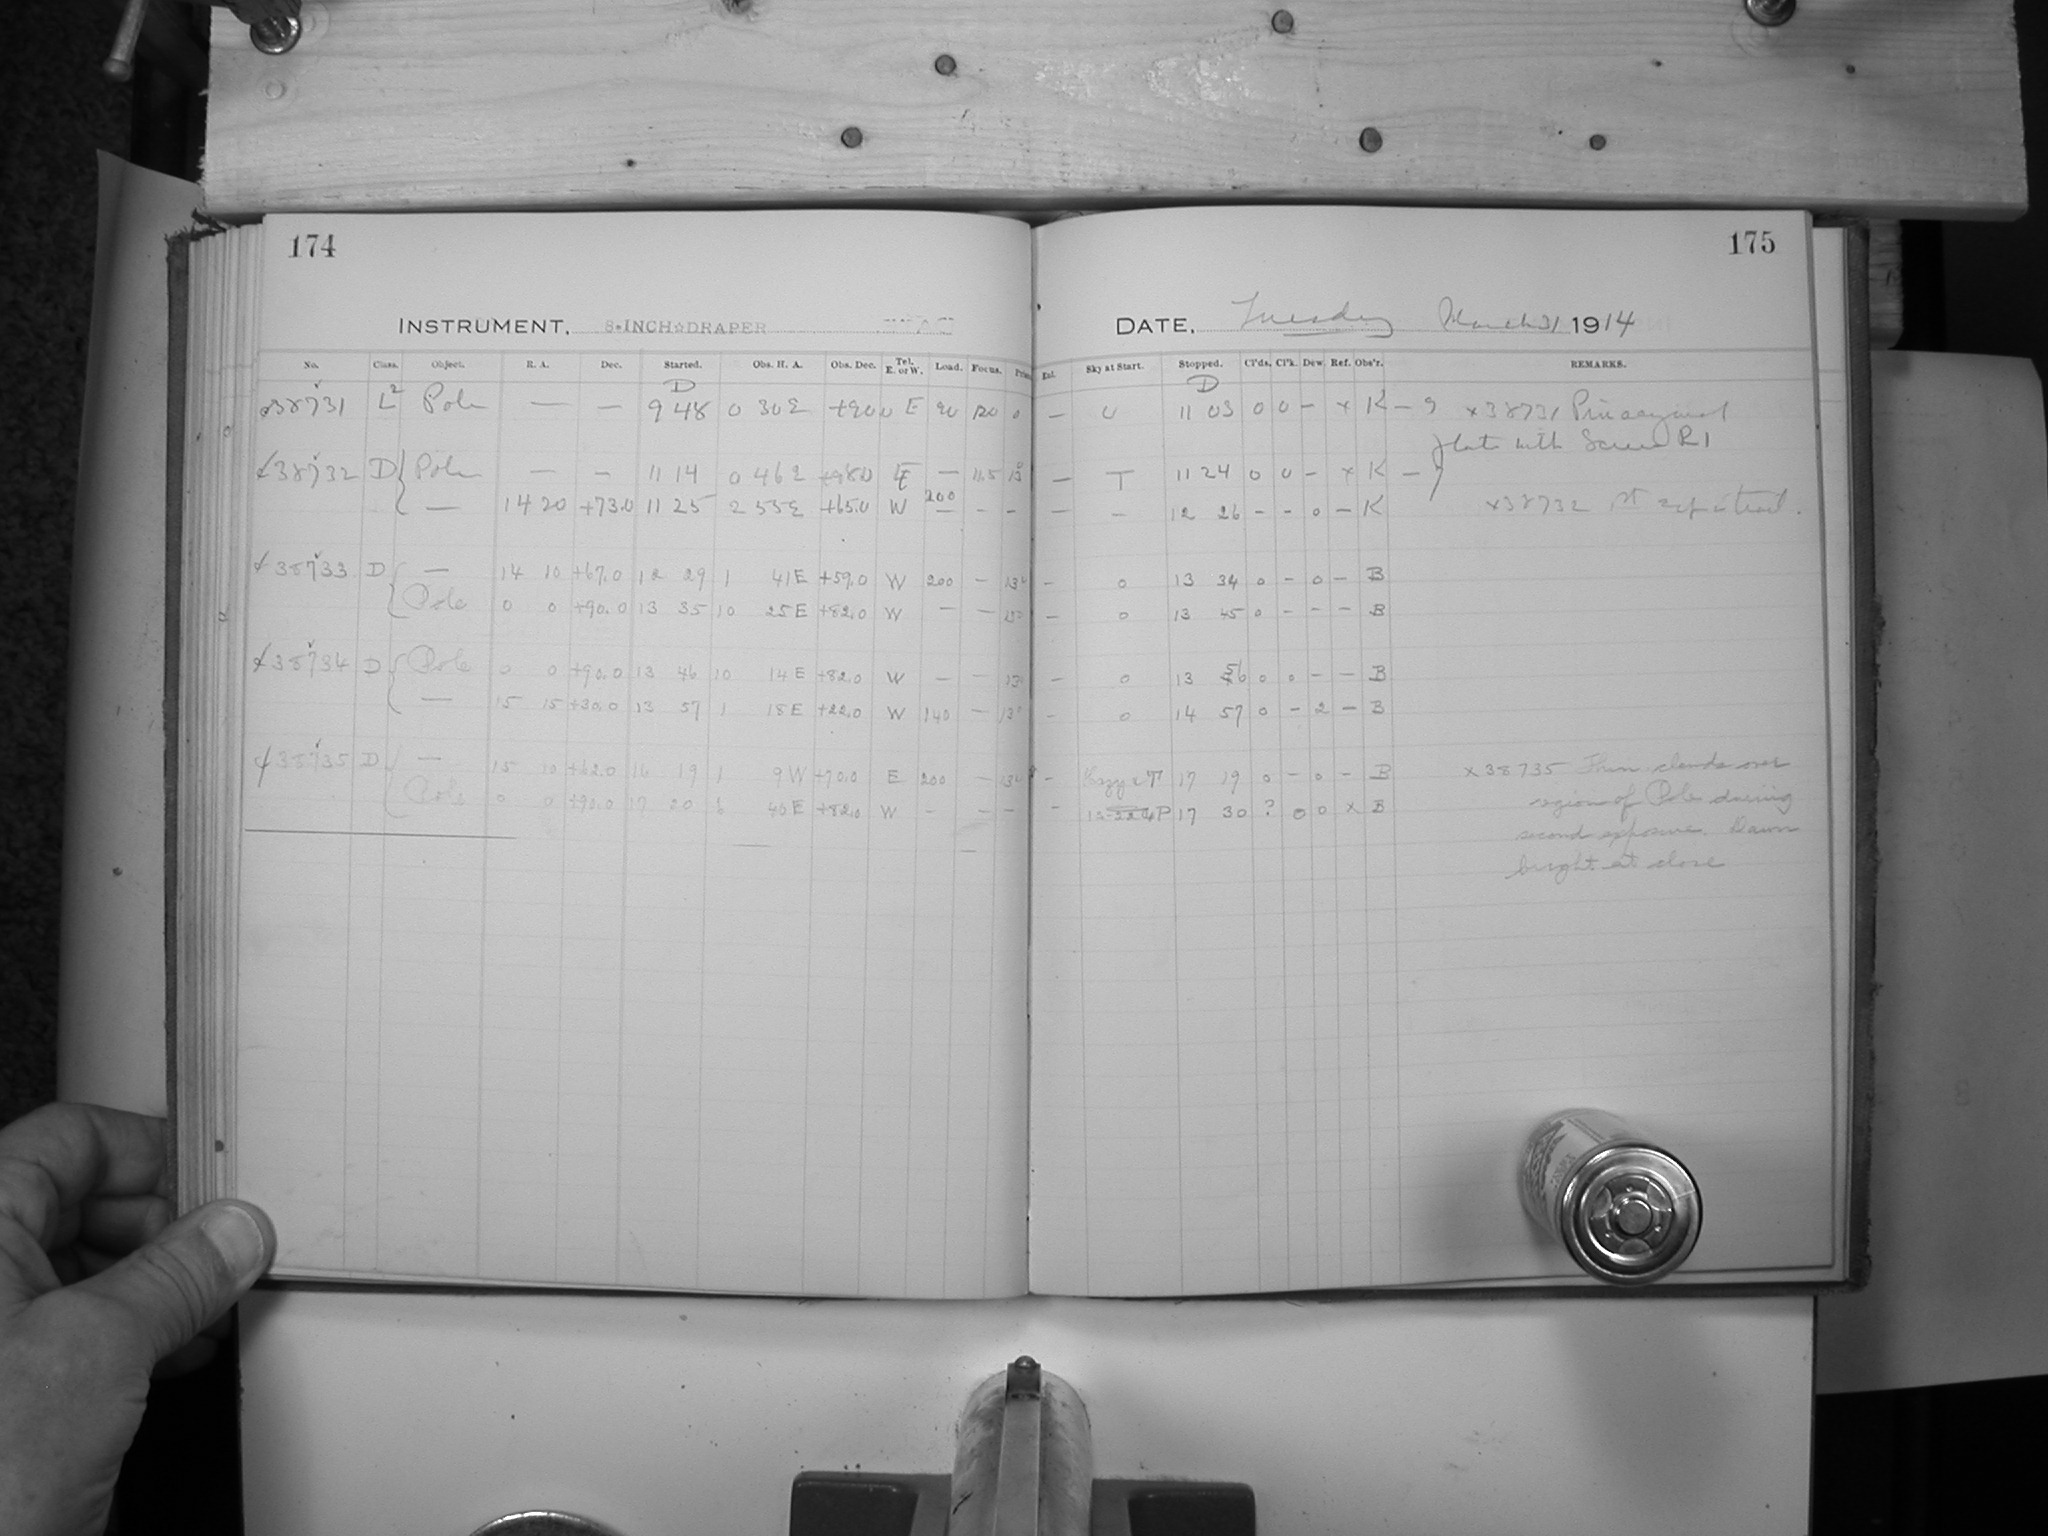 174
INSTRUMENT, 8-INCH☆DRAPER
No. Class. Object. R. A. Dec. Started. Obs. H. A. Obs. Dec. Tel. E. or W. Load. Focus.
D
38731 L2 Pole — — 9 48 0 30 E +90 0 E 90 120 0
38732 D Pole — — 11 14 0 46 E E — 11.5 13
— 14 20 +73.0 11 25 2 55 E +65.0 W 200 — —
38733 D — 14 10 +67.0 12 29 1 41 E +59.0 W 200 — 13
Pole 0 0 +90.0 13 35 10 25 E +82.0 W — — 13
38734 D Pole 0 0 +90.0 13 46 10 14 E +82.0 W — — 13
— 15 15 +30.0 13 57 1 18 E +22.0 W 140 — 13
38735 D — 15 10 +62.0 16 19 1 9 W +70.0 E 200 — 13
Pole 0 0 +90.0 17 20 6 40 E +82.0 W — — —
175
DATE, Tuesday March 31 1914
Ext. Sky at Start. Stopped. Cl'ds. Cl'k. Dew. Ref. Obs'r. REMARKS.
D
— 0 11 03 0 0 — x K — x38731 Pinacyanol
plate with Screen R1
— T 11 24 0 0 — x K —
— — 12 26 — — 0 — K x38732 1st exp is trail.
— 0 13 34 0 — 0 — B
— 0 13 45 0 — — — B
— 0 13 56 0 0 — — B
— 0 14 57 0 — 2 — B
— Hazy & T 17 19 0 — 0 — B x38735 Thin clouds over
— 17 30 ? 0 0 x B region of Pole during
second exposure. Dawn
bright at close